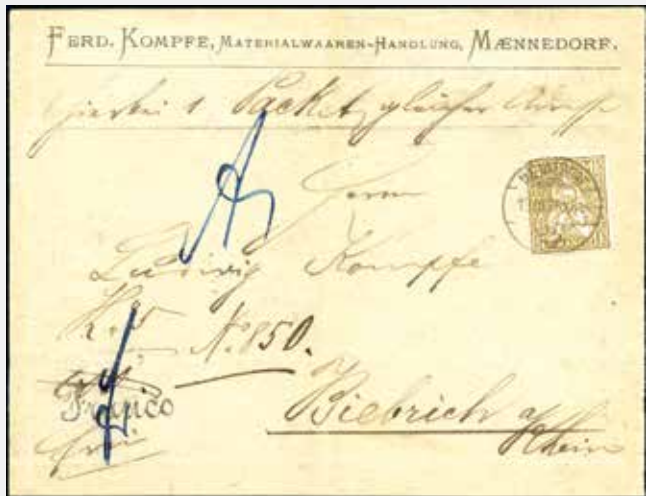 FERD. KOMPFE, MATERIALWAAREN-HANDLUNG, MÆNNEDORF.
hierbei 1 Packet gleicher Adresse
Herrn
Ludwig Kompfe
No. 850.
Franco
Biebrich a/
Rhein